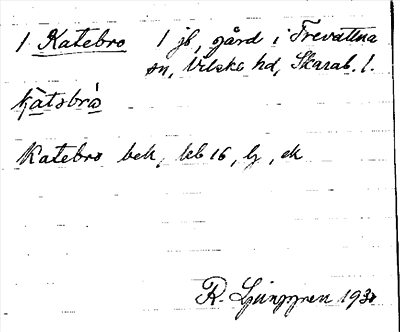 1 Katebro 1 jb, gård i Trevattna
sn, Vilske hd, Skarab. l.
kátsbrò
Katebro bek, kb 16, lj, ek
R. Ljunggren 1930